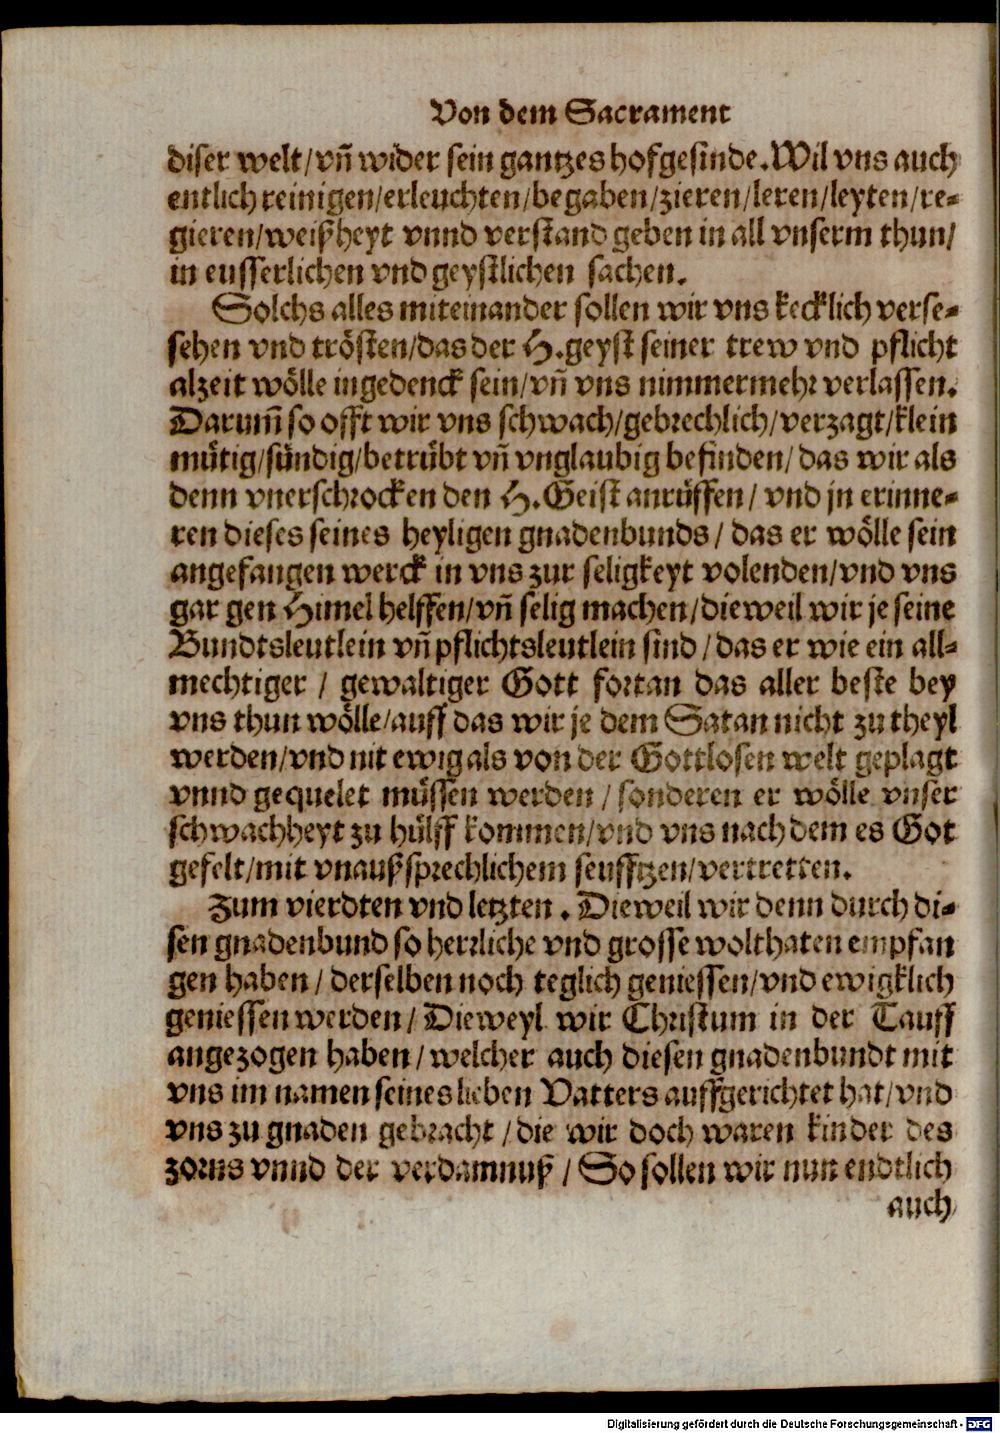 Von dem Sacrament
diser welt/vñ wider sein gantzes hofgesinde. Wil vns auch
entlich reinigen/erleuchten/begaben/zieren/leren/leyten/re-
gieren/weißheyt vnnd verstand geben in all vnserm thun/
in eusserlichen vnd geystlichen sachen.
Solchs alles miteinander sollen wir vns kecklich verse-
sehen vnd trösten/das der H. geyst seiner trew vnd pflicht
alzeit wölle ingedenck sein/vñ vns nimmermehr verlassen.
Darum̃ so offt wir vns schwach/gebrechlich/verzagt/klein
mütig/sündig/betrübt vñ vnglaubig befinden/das wir als
denn vnerschrocken den H. Geist anrüffen/vnd jn erinne-
ren dieses seines heyligen gnadenbunds/das er wölle sein
angefangen werck in vns zur seligkeyt volenden/vnd vns
gar gen Himel helffen/vñ selig machen/dieweil wir je seine
Bundtsleutlein vñ pflichtsleutlein sind/das er wie ein all-
mechtiger/gewaltiger Gott fortan das aller beste bey
vns thun wölle/auff das wir je dem Satan nicht zu theyl
werden/vnd nit ewig als von der Gottlosen welt geplagt
vnnd gequelet müssen werden/sonderen er wölle vnser
schwachheyt zu hülff kommen/vnd vns nach dem es Got
gefelt/mit vnaußsprechlichem seufftzen/vertretten.
Zum vierdten vnd letzten. Dieweil wir denn durch di-
sen gnadenbund so herrliche vnd grosse wolthaten empfan
gen haben/derselben noch teglich geniessen/vnd ewigklich
geniessen werden/Dieweyl wir Christum in der Tauff
angezogen haben/welcher auch diesen gnadenbundt mit
vns im namen seines lieben Vatters auffgerichtet hat/vnd
vns zu gnaden gebracht/die wir doch waren kinder des
zorns vnnd der verdamnuß/So sollen wir nun endtlich
auch
Digitalisierung gefördert durch die Deutsche Forschungsgemeinschaft - DFG